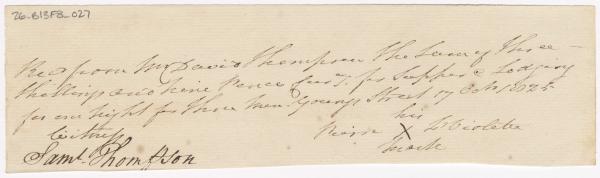 26-B13F8_027
Recd from Mr David Thompson the Sum of Three
Shillings and nine Pence Curcy for Supper & Lodging
for one night for three men. Young Street 17 Octr 1825
his
Witness X Violette
mark
Saml. Thompson